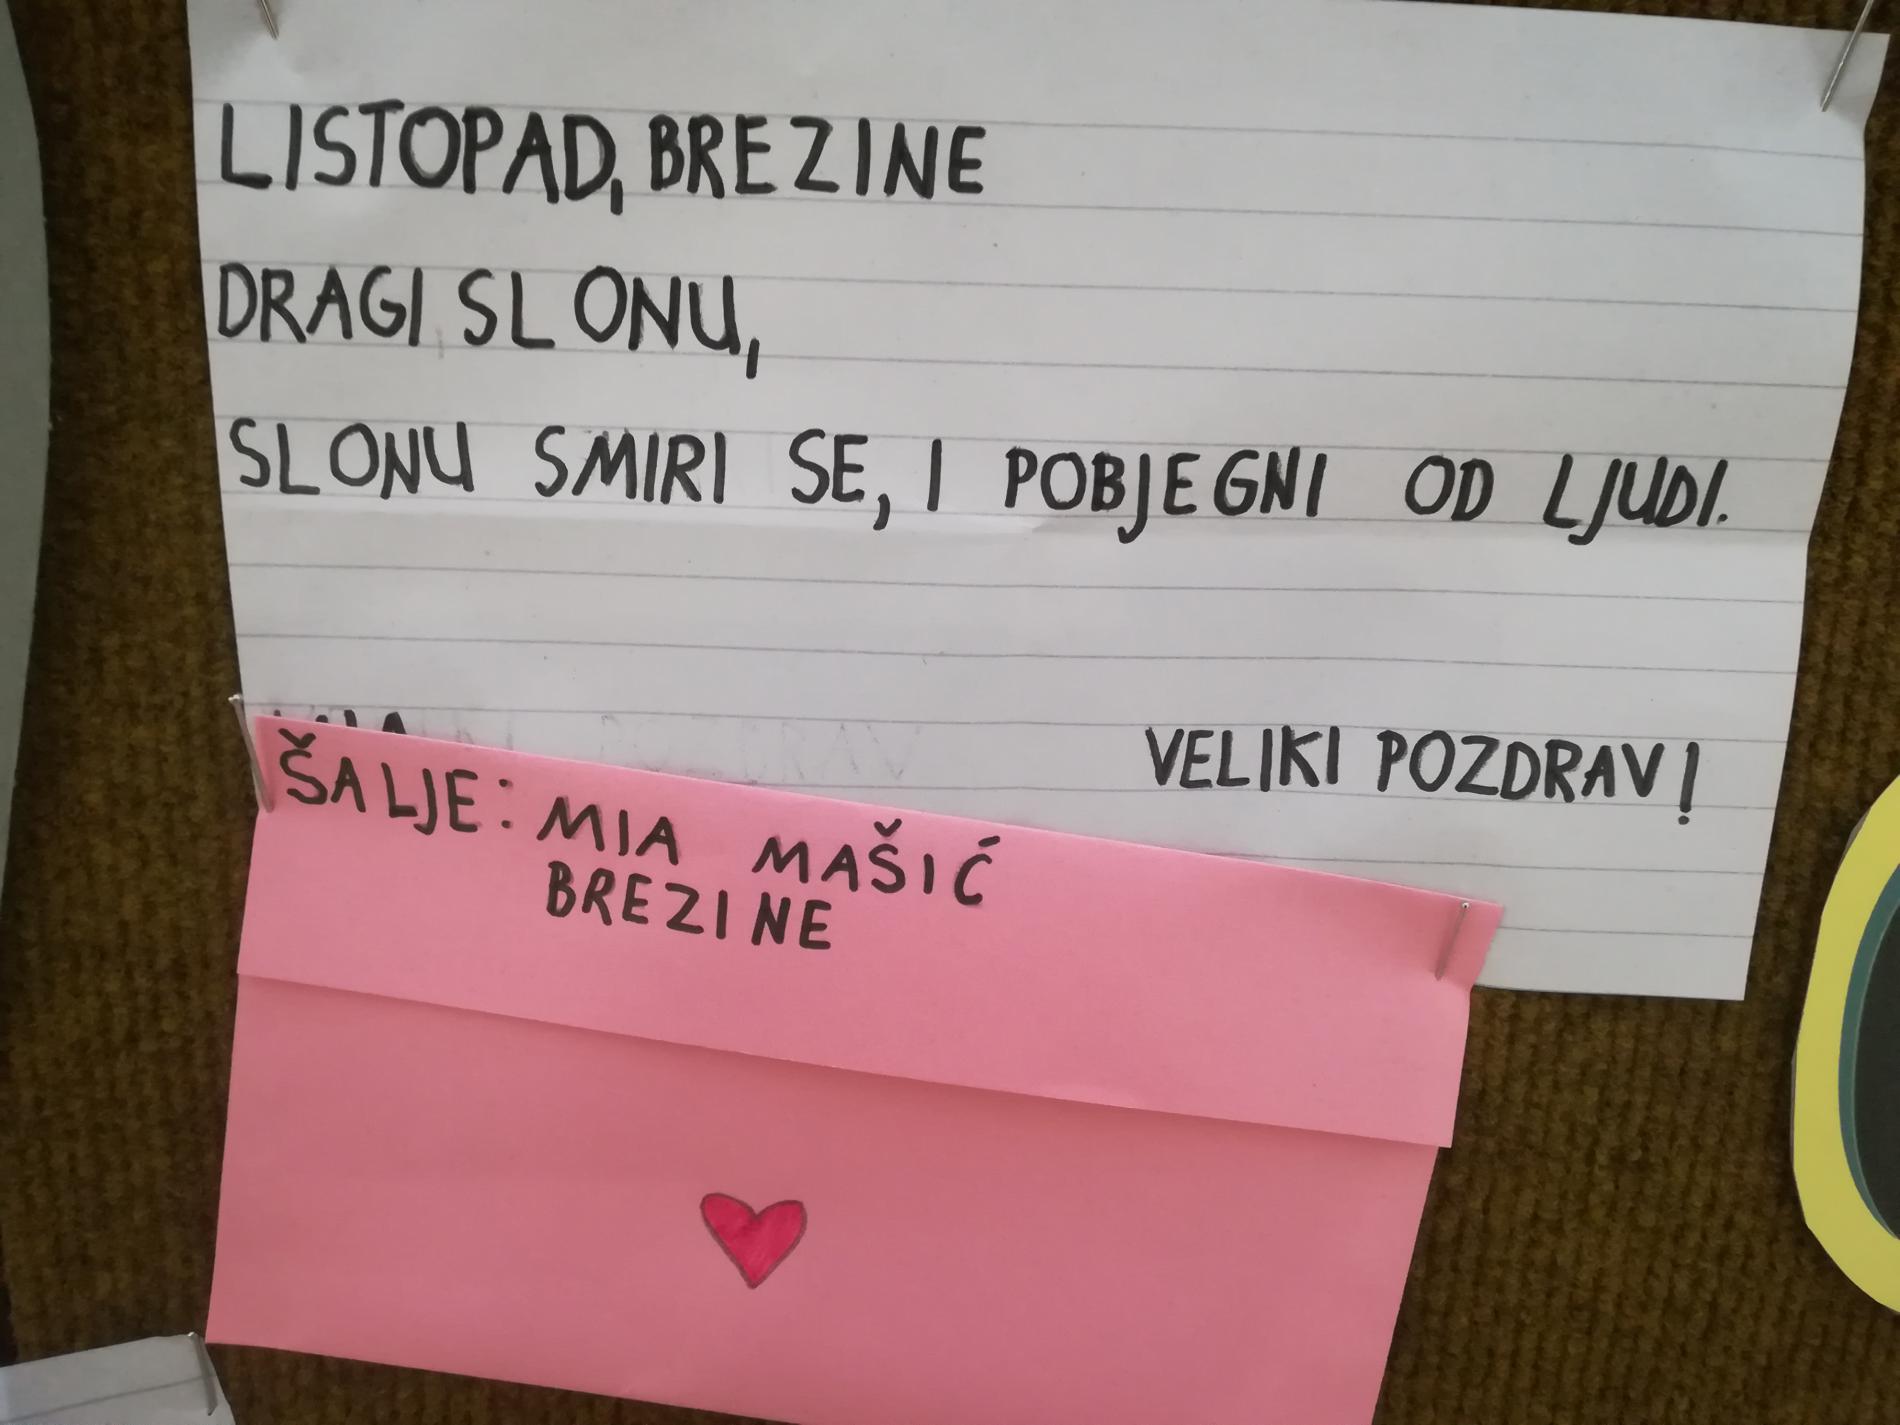 LISTOPAD, BREZINE
DRAGI SLONU,
SLONU SMIRI SE, I POBJEGNI OD LJUDI.
VELIKI POZDRAV!
POZDRAV
ŠALJE: MIA MAŠIĆ
BREZINE